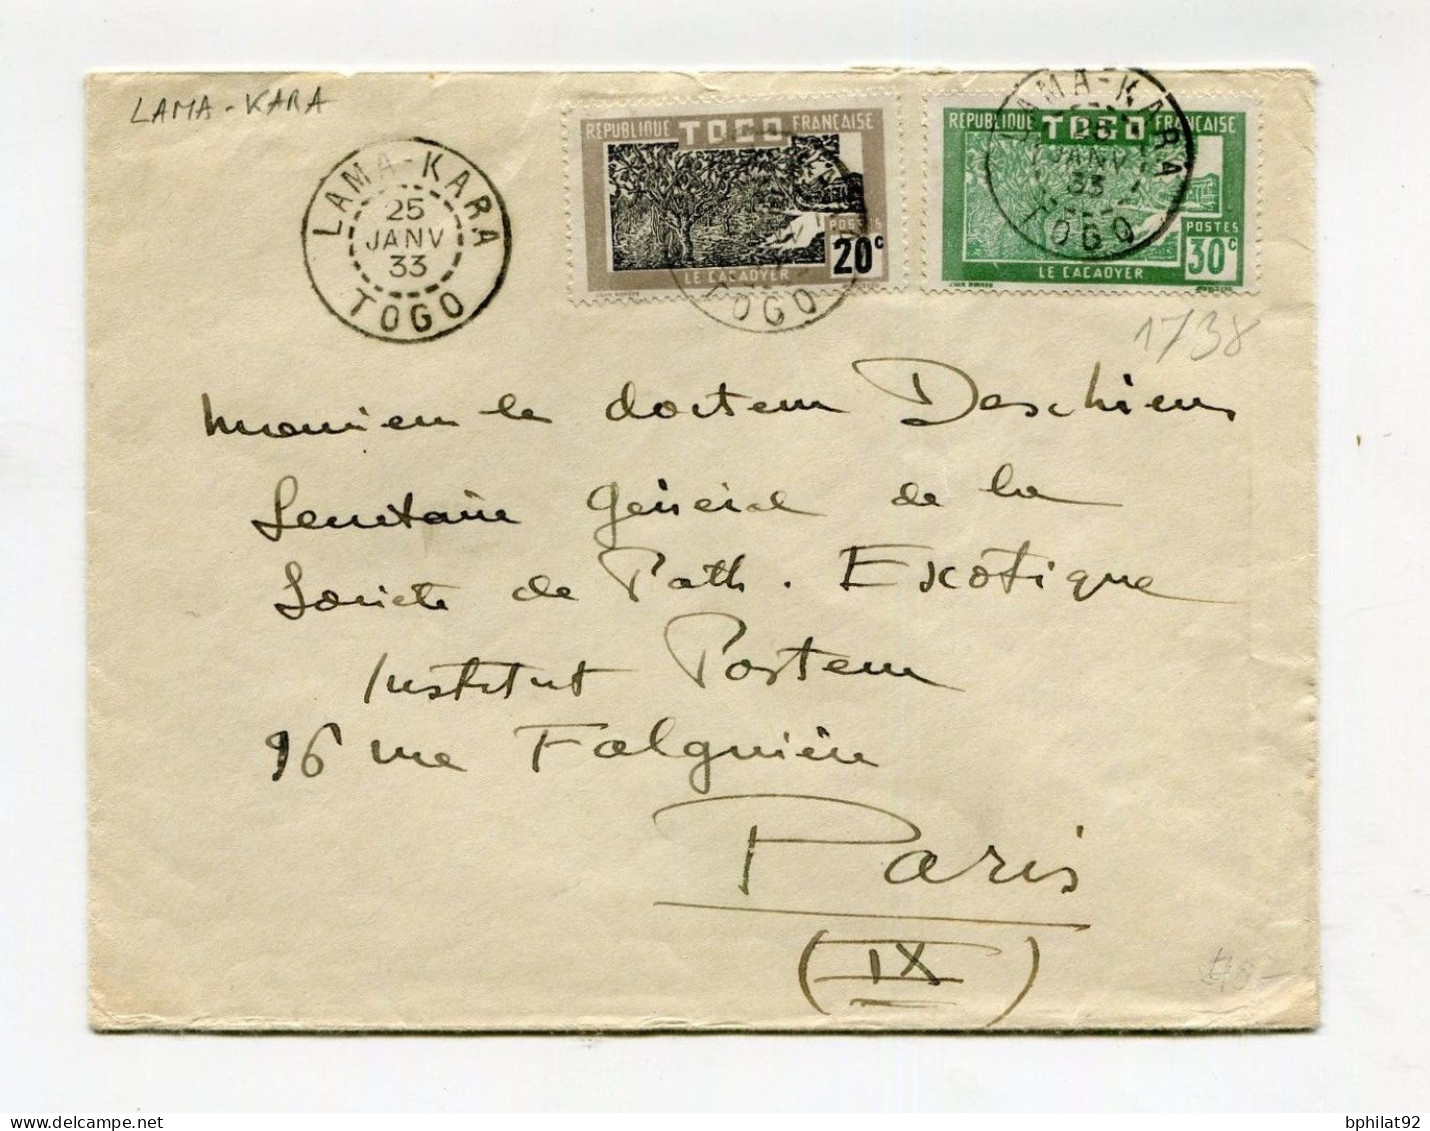 LAMA-KARA
LAMA-KARA
25
JANV
33
TOGO
REPUBLIQUE TOGO FRANÇAISE
POSTES
20c
LE CACAOYER
TOGO
REPUBLIQUE TOGO FRANÇAISE
POSTES
30c
LE CACAOYER
LAMA-KARA
25
JANV
33
TOGO
1738
Monsieur le docteur Deschiens
Secrétaire Général de la
Société de Path. Exotique
Institut Pasteur
96 rue Falguière
Paris
(IX)
bphilat92